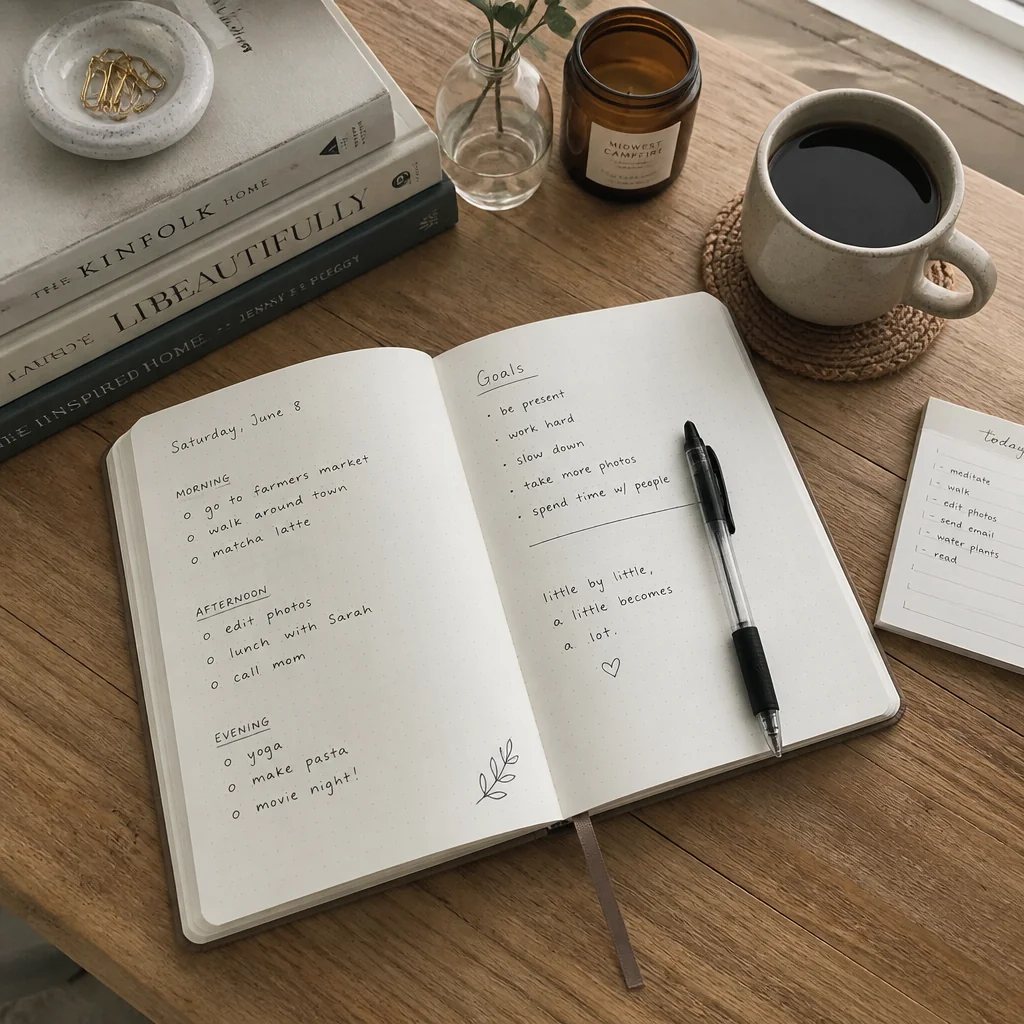 THE KINFOLK HOME
LIBEAUTIFULLY
INSPIRED HOME
MIDWEST
CAMPFIRE
Saturday, June 8
MORNING
o go to farmers market
o walk around town
o matcha latte
AFTERNOON
o edit photos
o lunch with Sarah
o call mom
EVENING
o yoga
o make pasta
o movie night!
Goals
• be present
• work hard
• slow down
• take more photos
• spend time w/ people
little by little,
a little becomes
a lot.
♡
today
- meditate
- walk
- edit photos
- send email
- water plants
- read